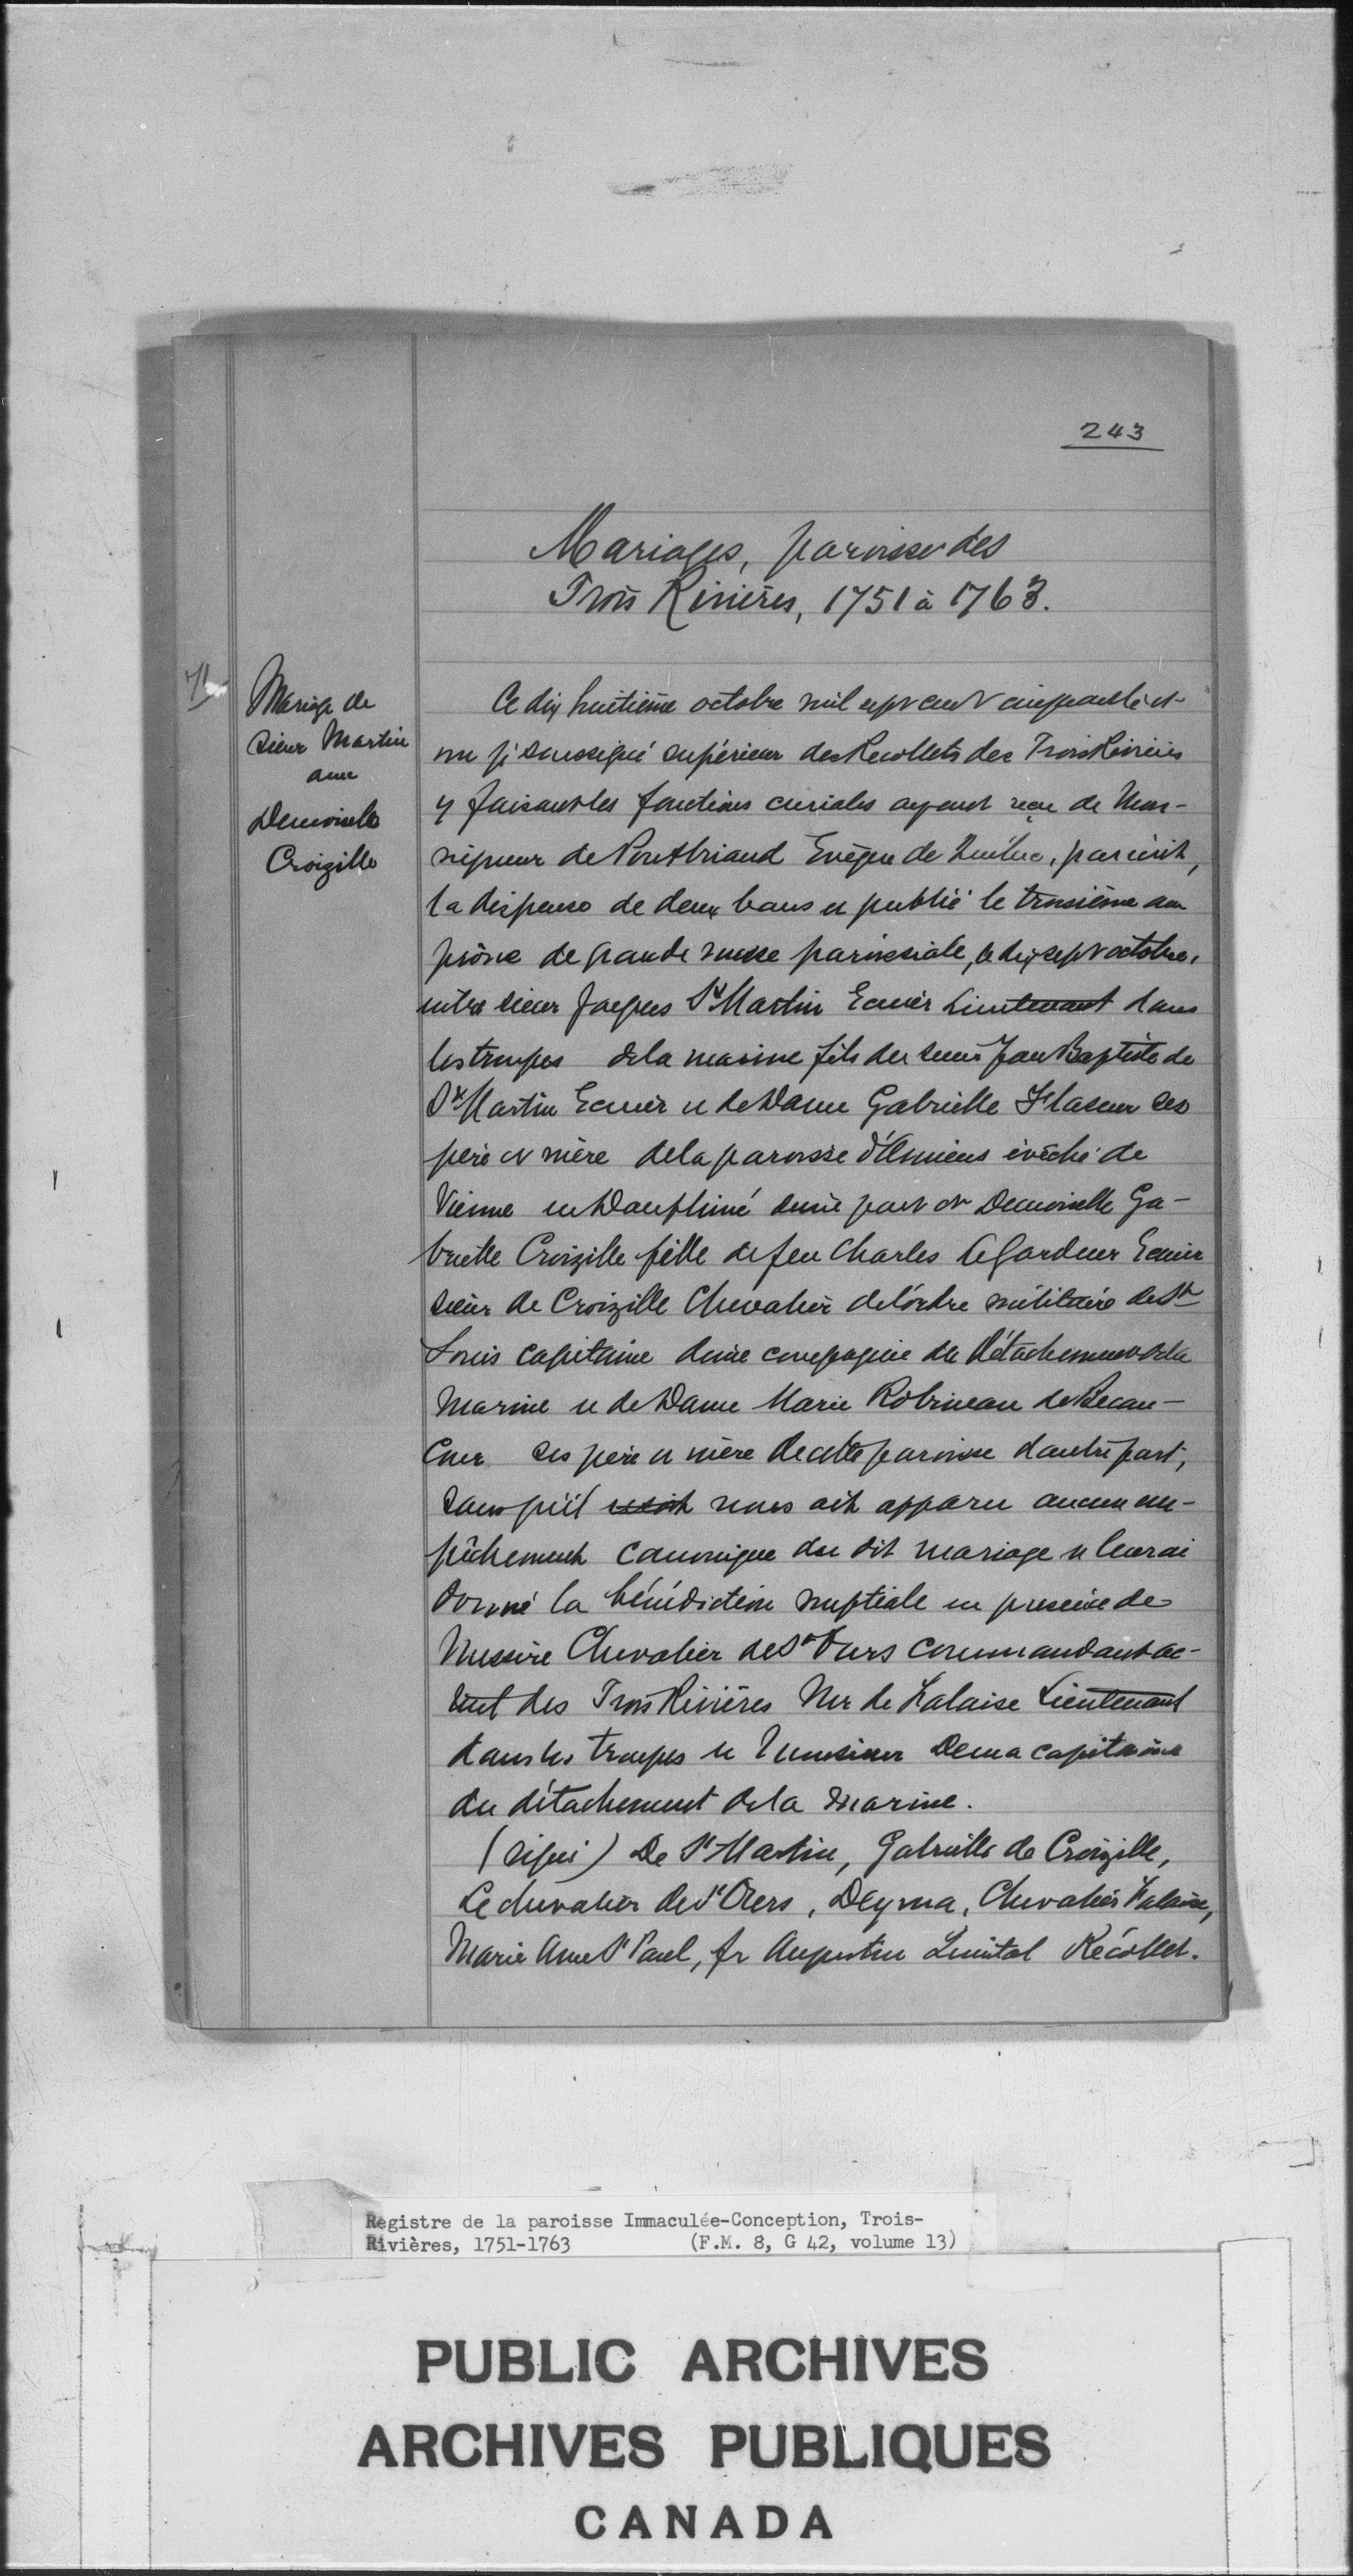 243
Mariages, paroisse des
Trois Rivières, 1751 à 1763.
Mariage de
sieur Martin
avec
Demoiselle
Croizille
Ce dix huitième octobre mil sept cent cinquante et
un je soussigné supérieur des Recollets des Trois Rivières
y faisant les fonctions curiales ayant reçu de Mon-
seigneur de Pontbriand Evêque de Québec, par écrit,
la dispense de deux bans et publié le troisième au
prône de grande messe paroissiale, le dix sept octobre,
entre sieur Jacques St Martin Ecuier Lieutenant dans
les troupes de la marine fils du sieur Jean Baptiste de
St Martin Ecuier et de Dame Gabrielle ses
père et mère de la paroisse évêché de
Vienne en Dauphiné d'une part et Demoiselle Ga-
brielle Croizille fille de feu Charles Legardeur Ecuier
sieur de Croizille Chevalier de l'ordre militaire de St
Louis capitaine d'une compagnie du Détachement de la
Marine et de Dame Marie Robineau de Becan-
cour ses père et mère de cette paroisse d'autre part,
sans qu'il nous ait apparu aucun em-
pêchement canonique du dit mariage et leur ai
donné la bénédiction nuptiale en présence de
Messire Chevalier de St Ours commandant ac-
tuel des Trois Rivières Mr de Lieutenant
dans les troupes et Monsieur Dema capitaine
du détachement de la marine.
(signé) De St Martin, Gabrielle de Croizille,
Le chevalier de St Ours, Deyma, Chevalier
Marie Anne St Paul, fr Augustin Quintal Récollet.
Registre de la paroisse Immaculée-Conception, Trois-
Rivières, 1751-1763 (F.M. 8, G 42, volume 13)
PUBLIC ARCHIVES
ARCHIVES PUBLIQUES
CANADA